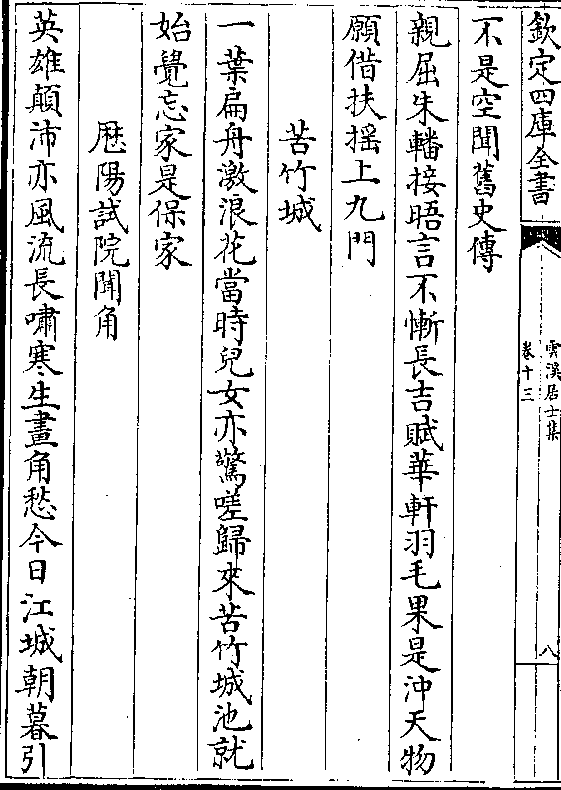 欽定四庫全書
雲溪居士集
卷十三
八
不是空聞舊史傳
親屈朱轓接晤言不慚長吉賦華軒羽毛果是沖天物
願借扶揺上九門
苦竹城
一葉扁舟激浪花當時兒女亦驚嗟歸來苦竹城池就
始覺忘家是保家
厯陽試院聞角
英雄顛沛亦風流長嘯寒生畫角愁今日江城朝暮引